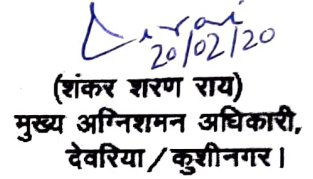 20/02/20
(शंकर शरण राय)
मुख्य अग्निशमन अधिकारी,
देवरिया/कुशीनगर।